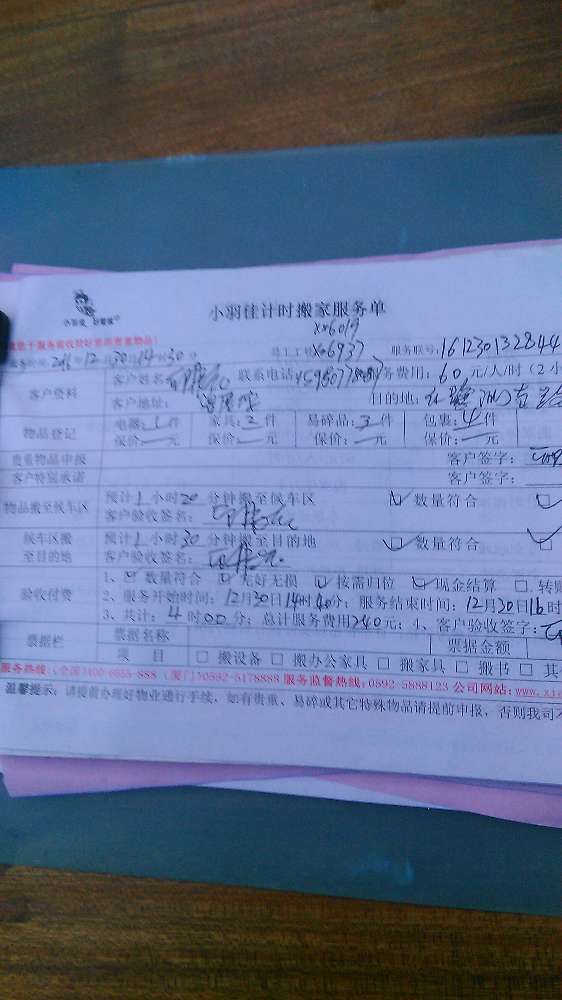 小羽佳计时搬家服务单
XX6019
员工工号XX6937 服务联号:161230132844
2016年12月30日14时30分
客户资料 客户姓名: 联系电话 服务费用:60元/人/时(2小
客户地址: 目的地:
物品登记 电器:1件 家具:2件 易碎品:3件 包裹:4件
保价:一元 保价:一元 保价:一元 保价:一元
贵重物品申报 客户签字:
客户特别承诺 客户签字:
物品搬至候车区 预计1小时20分钟搬至候车区 ☑数量符合
客户验收签名:
候车区搬至目的地 预计1小时30分钟搬至目的地 ☑数量符合
客户验收签名:
验收付费 1、☑数量符合 ☑完好无损 ☑按需归位 ☑现金结算 □转账
2、服务开始时间:12月30日14时40分;服务结束时间:12月30日16时
3、共计:4时00分;总计服务费用240元;4、客户验收签字:
票据栏 票据名称 票据金额
项 目 □搬设备 □搬办公家具 □搬家具 □搬书 □其
服务热线:(全国)400-6655-888 (厦门)0592-5178888 服务监督热线:0592-5888123 公司网站:www.xi
温馨提示:请提前办理好物业通行手续,如有贵重、易碎或其它特殊物品请提前申报,否则我司不